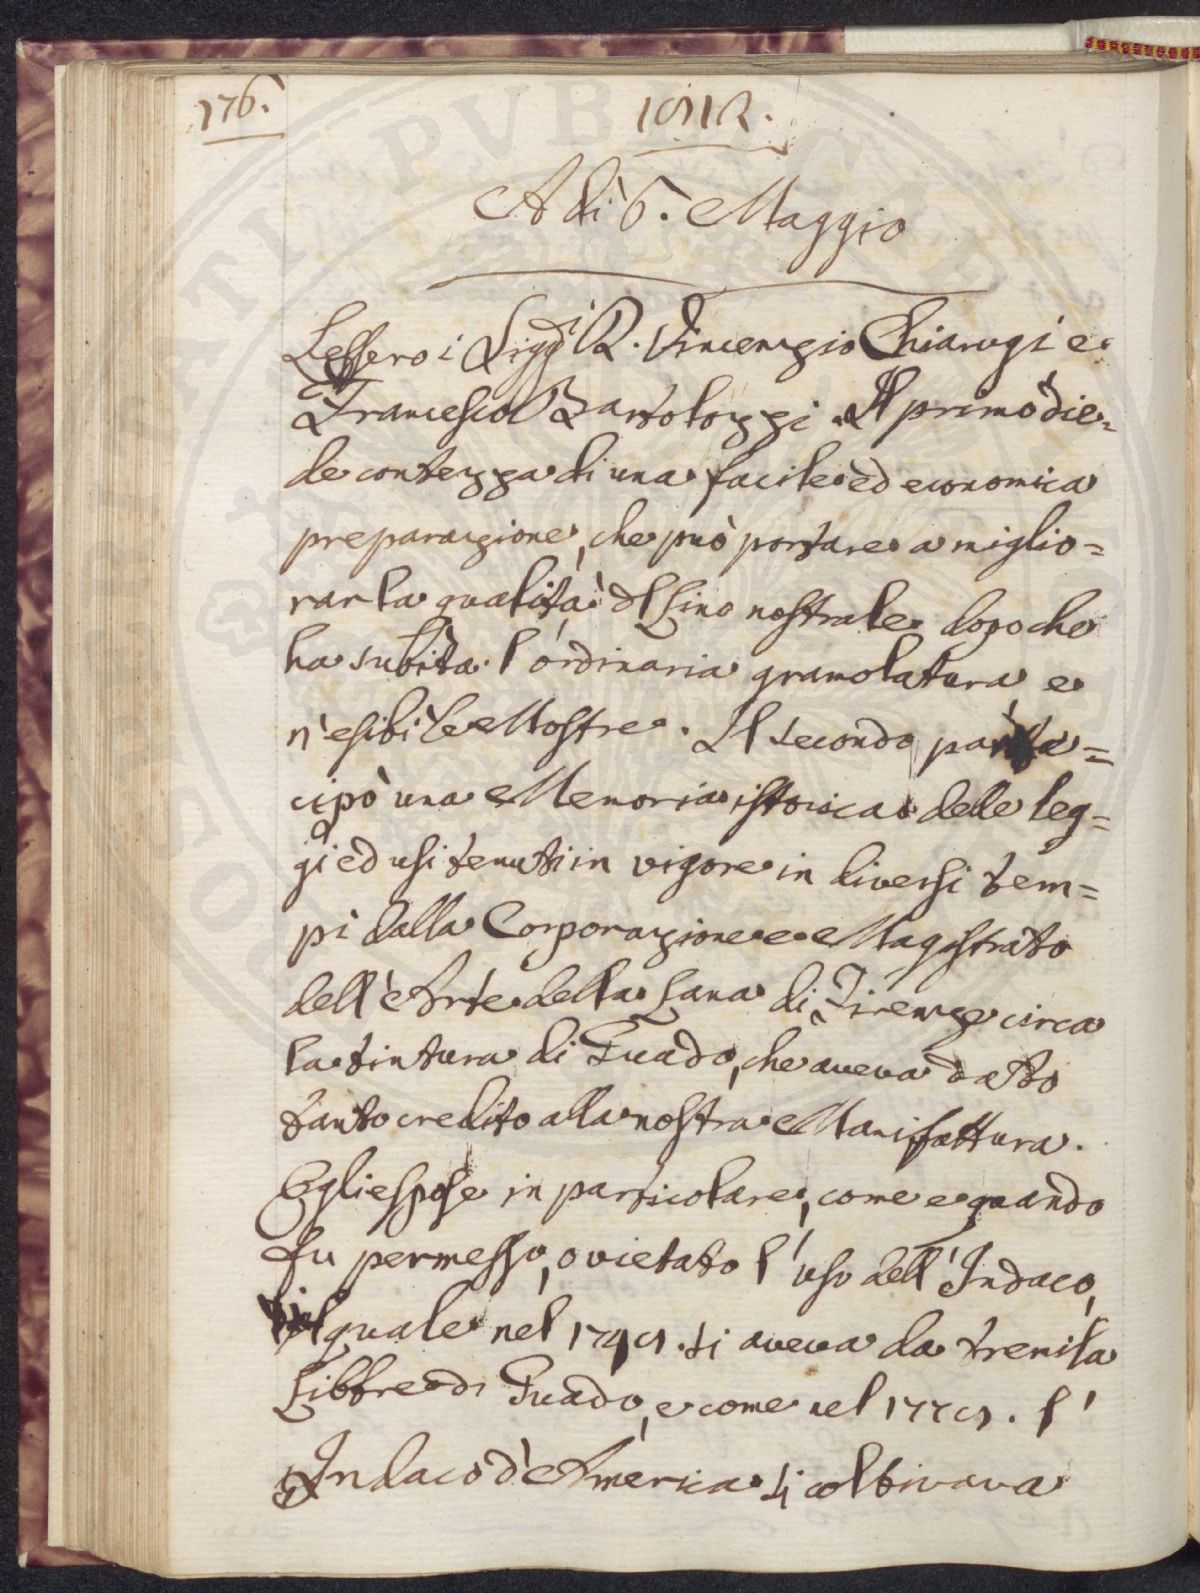 176.
1812.
A dì 6. Maggio
Lessero i Sigg.ri D. Vincenzio Chiarugi e
Francesco Bartolozzi. Il primo die=
de contezza di una facile ed economica
preparazione, che può portare a miglio=
rar la qualità del Lino nostrale dopo che
ha subìta l'ordinaria gramolatura e
n'esibì le Mostre. Il secondo parte=
cipò una Memoria istorica delle leg=
gi ed usi tenuti in vigore in diversi tem=
pi dalla Corporazione e Magistrato
dell'Arte della Lana di Firenze circa
la tintura di Guado, che aveva dato
tanto credito alla nostra Manifattura.
Egli espose in particolare, come e quando
fu permesso, o vietato l'uso dell'Indaco,
quale nel si aveva da tremila
Libbre di Guado, e come nel l'
Indaco d'America si coltivava